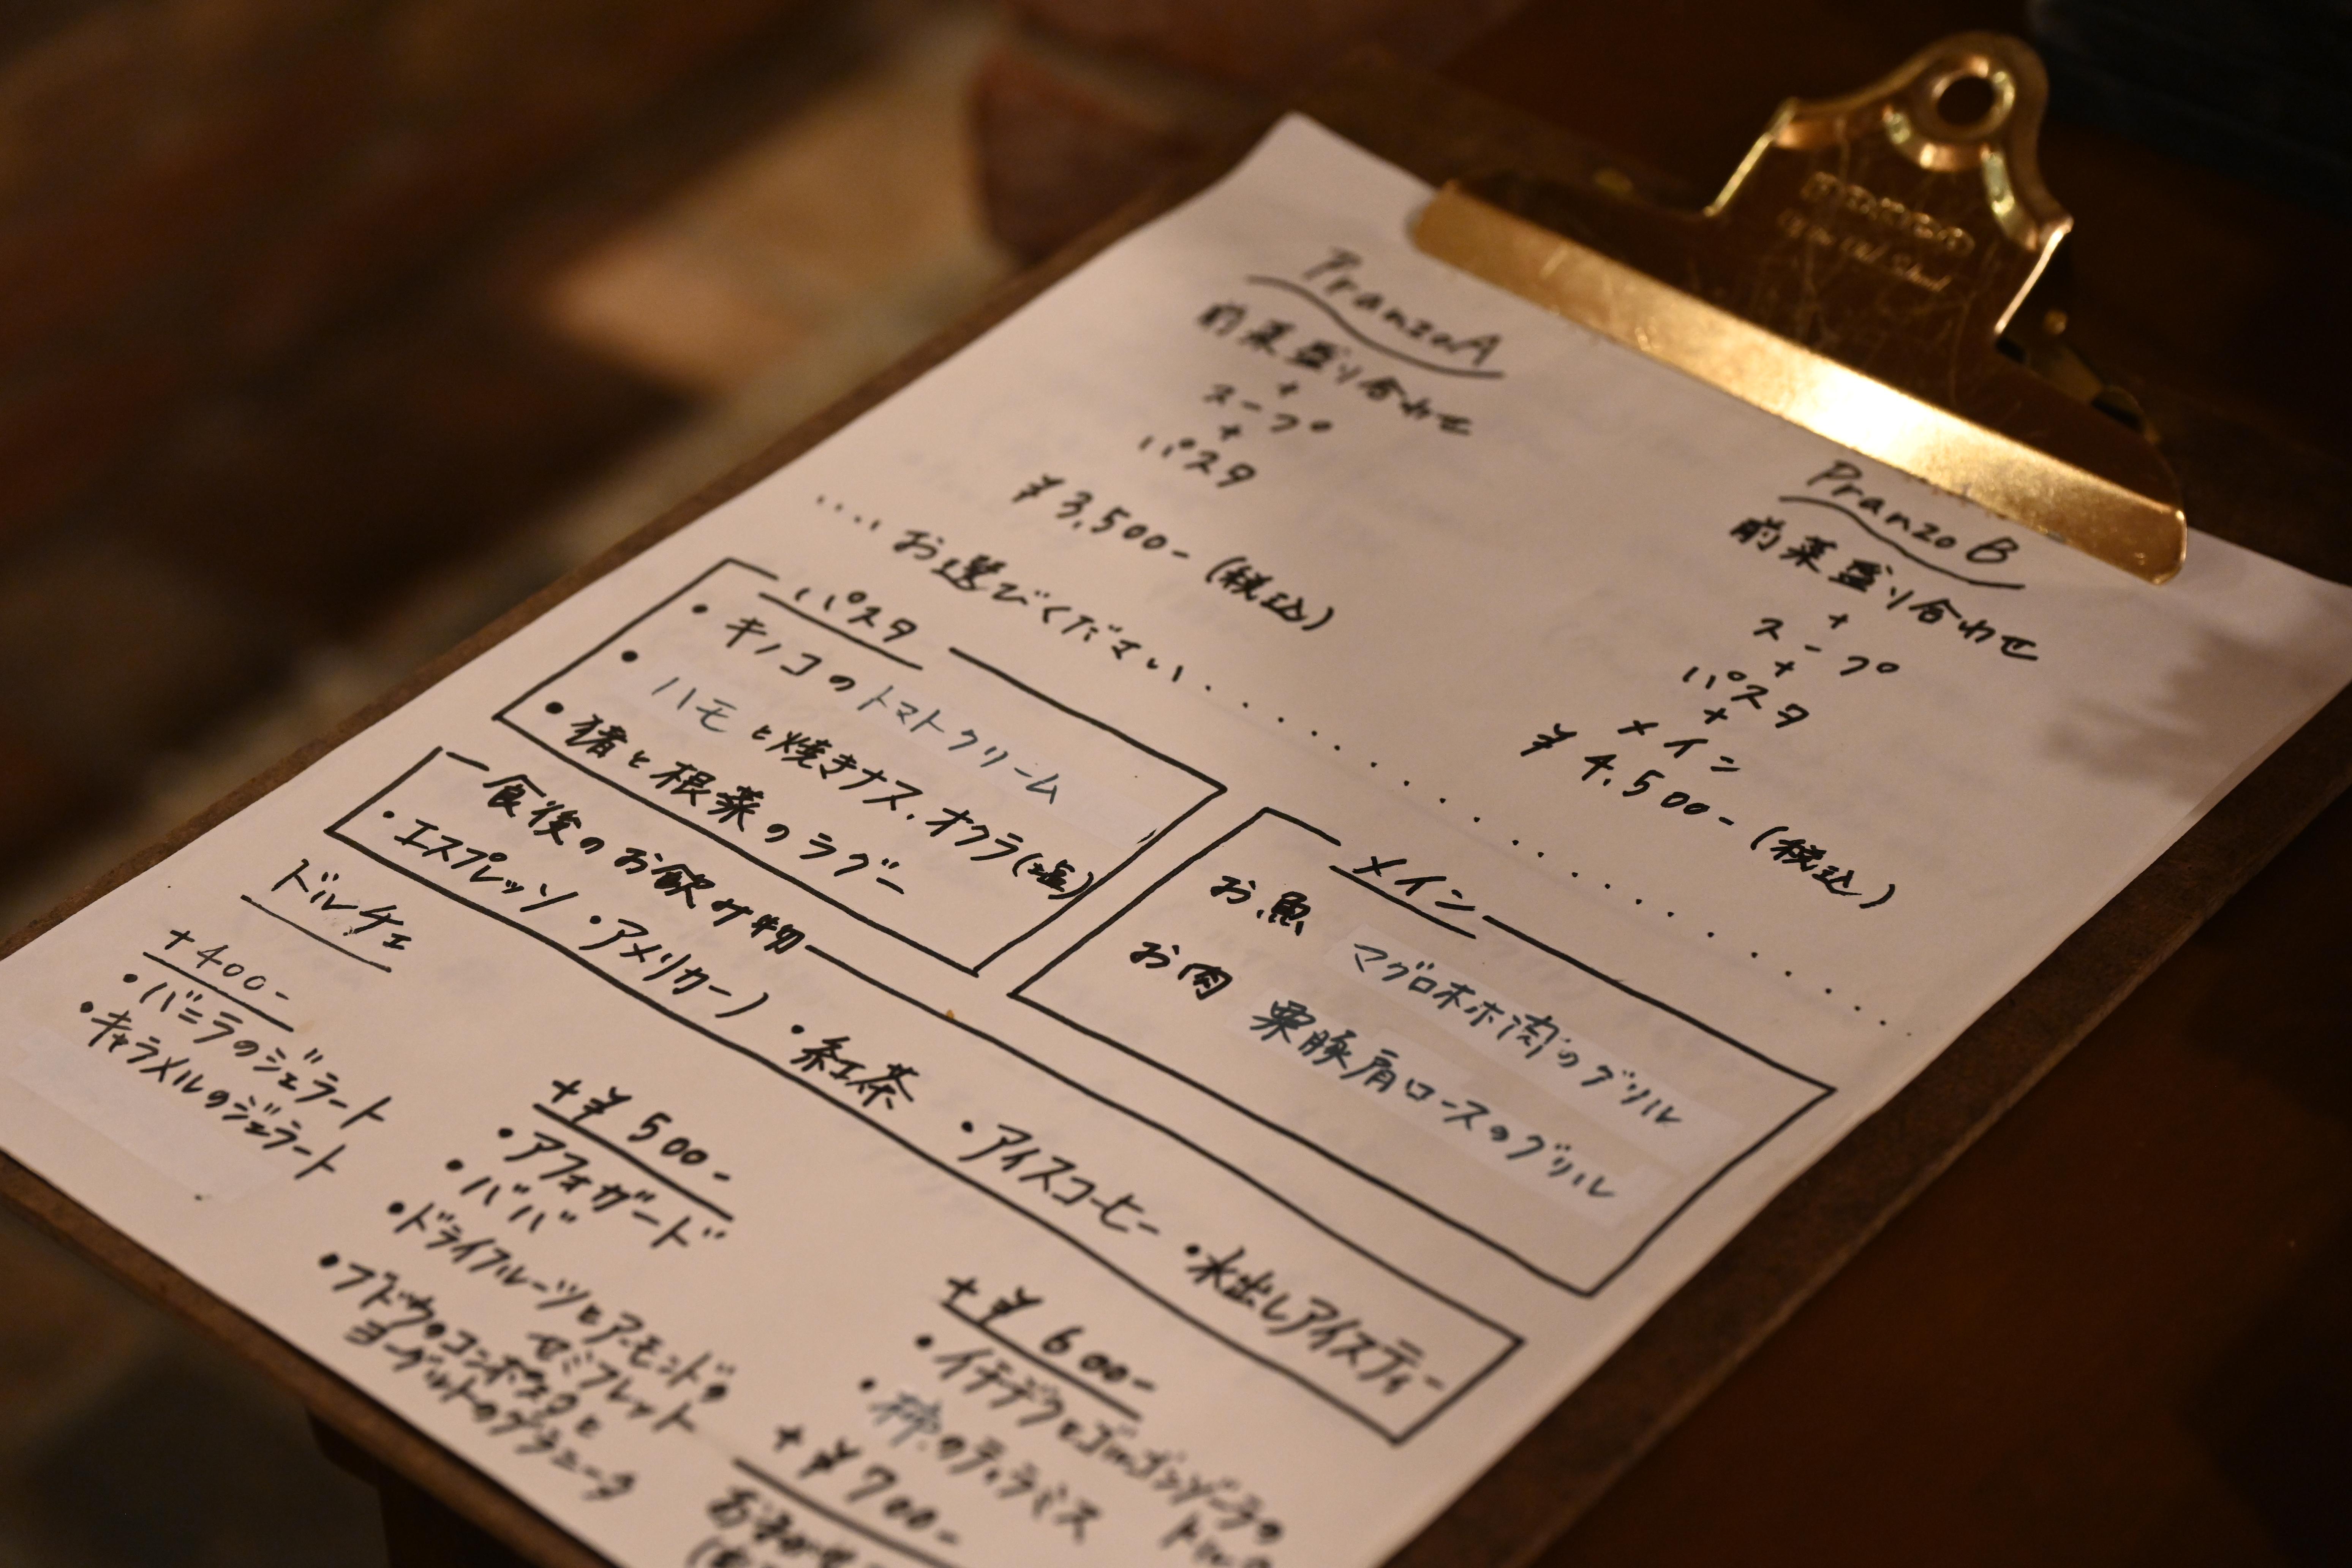 Pranzo A
前菜盛り合わせ
+
スープ
+
パスタ
¥3,500-(税込)
Pranzo B
前菜盛り合わせ
+
スープ
+
パスタ
+
メイン
¥4,500-(税込)
....お選びください..............
パスタ
・キノコのトマトクリーム
・ハモと焼きナス、オクラ(塩)
・猪と根菜のラグー
メイン
お魚 マグロホホ肉のグリル
お肉 栗豚肩ロースのグリル
食後のお飲み物
・エスプレッソ ・アメリカーノ ・紅茶 ・アイスコーヒー ・水出しアイスティー
ドルチェ
+400-
・バニラのジェラート
・キャラメルのジェラート
+¥500-
・アフォガード
・ババ
・ドライフルーツとアーモンドの
セミフレット
・ブドウのコンポスタと
ヨーグルトのグラニータ
+¥600-
・イチヂクとゴルゴンゾーラの
・柿のティラミス
+¥700-